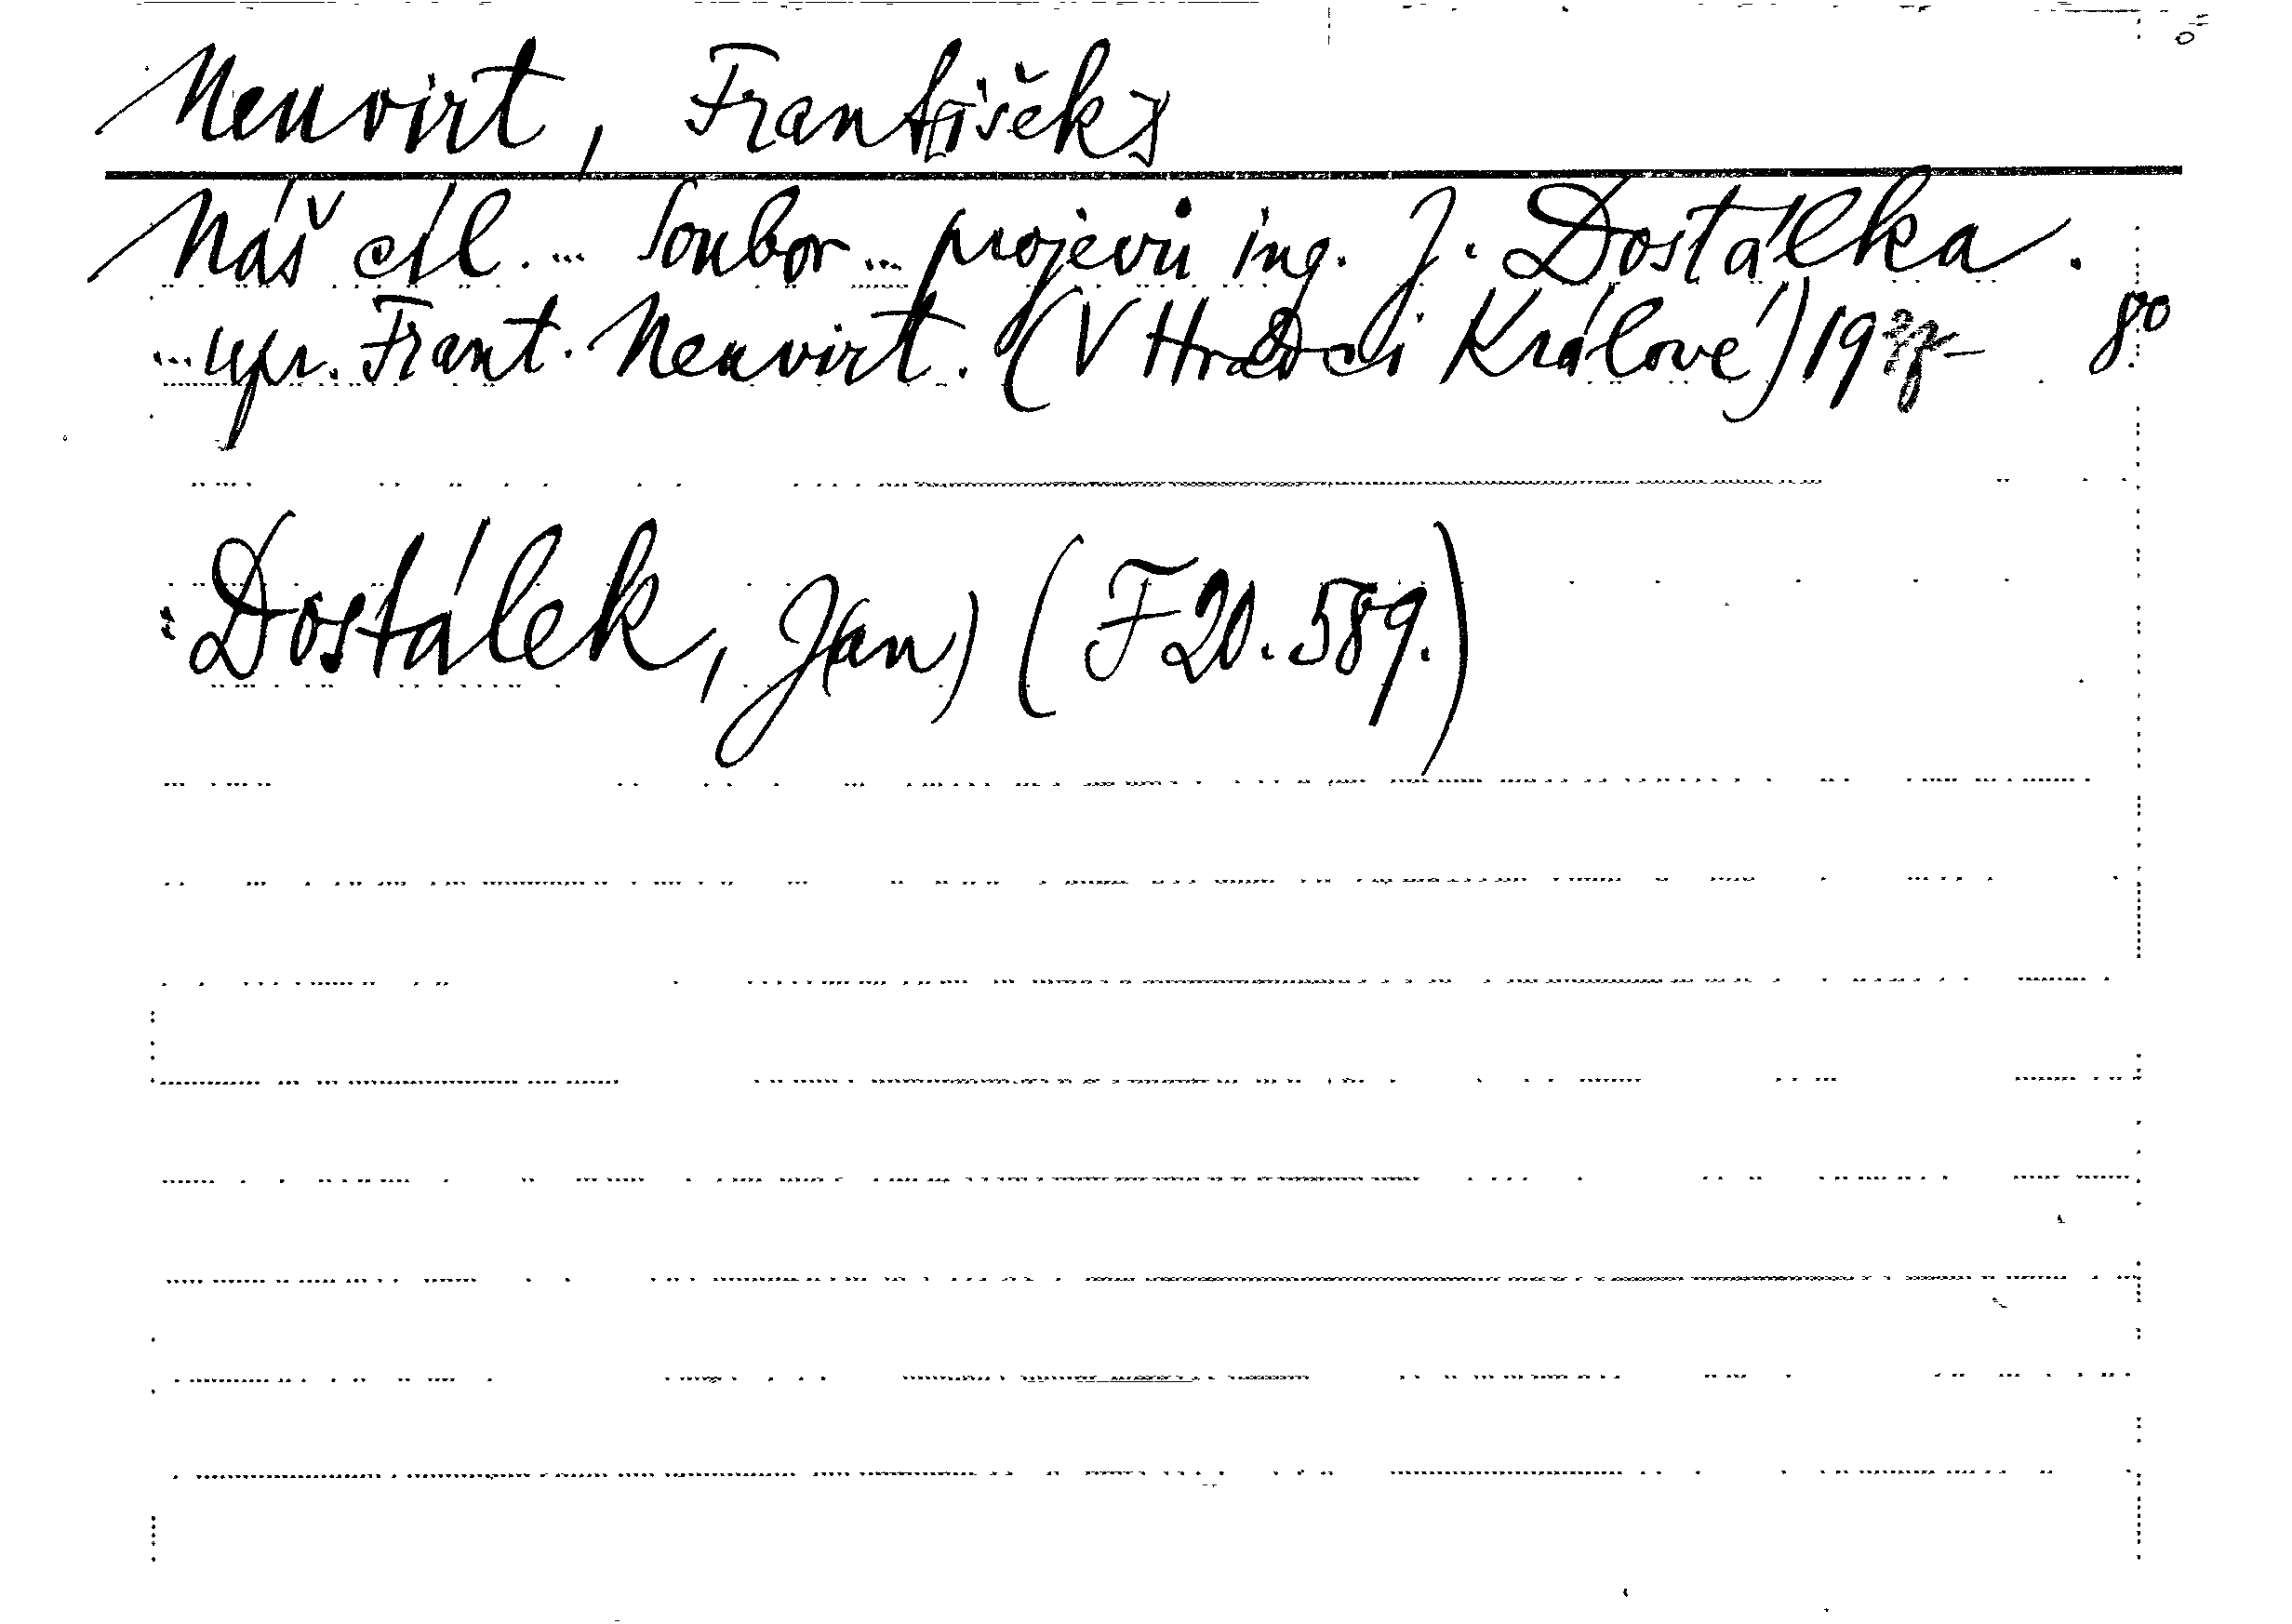 Neuvirt, Frant[išek]
Náš cíl. ... Soubor ... projevů ing. J. Dostálka.
... upr. Frant. Neuvirt. (V Hradci Králové) 1937 8°
: Dostálek, J(an) (F 20.589.)